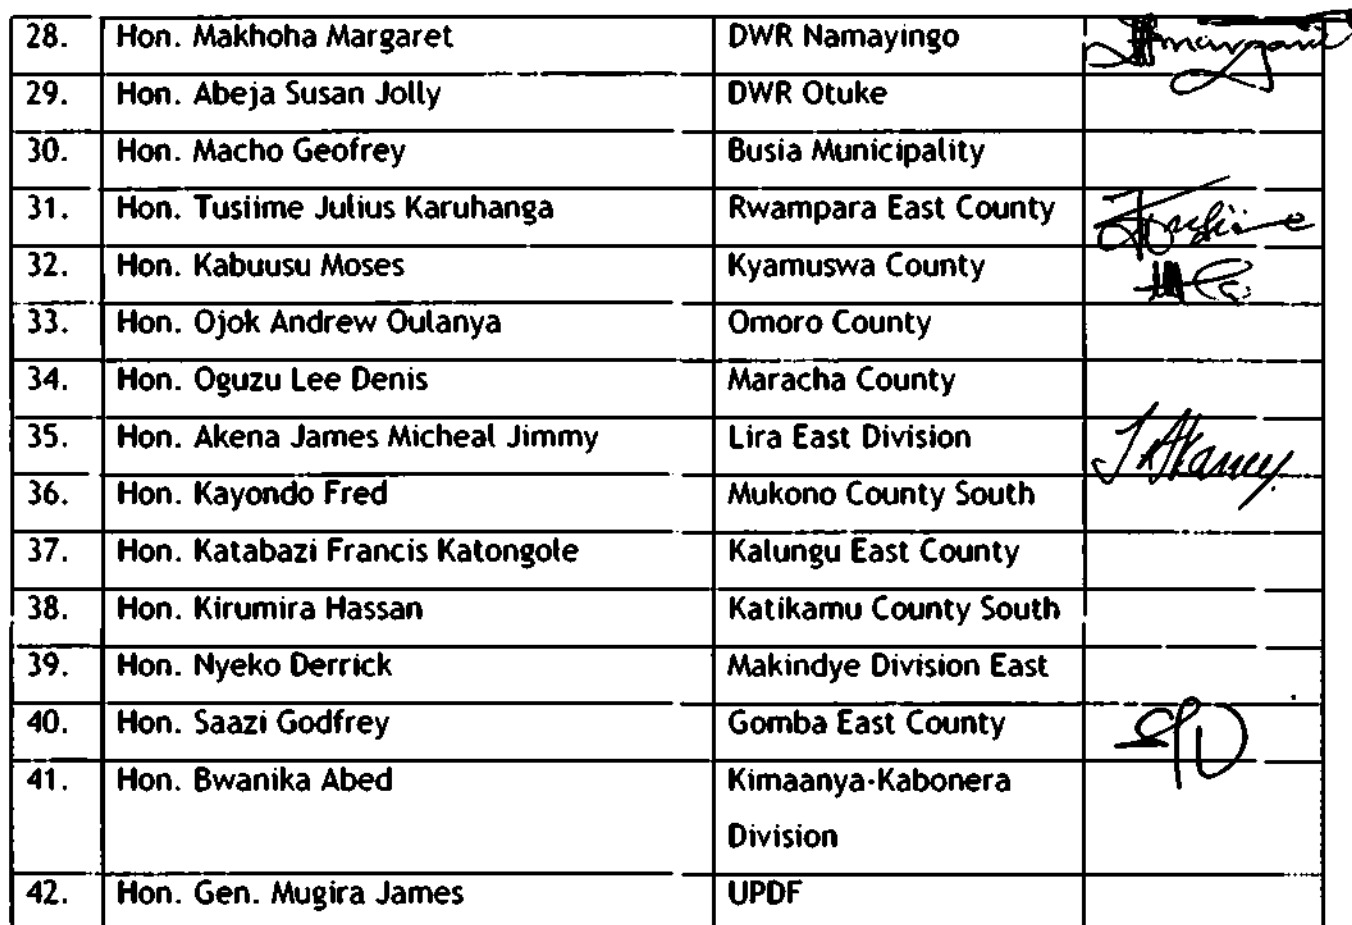 28. Hon. Makhoha Margaret DWR Namayingo
29. Hon. Abeja Susan Jolly DWR Otuke
30. Hon. Macho Geofrey Busia Municipality
31. Hon. Tusiime Julius Karuhanga Rwampara East County
32. Hon. Kabuusu Moses Kyamuswa County
33. Hon. Ojok Andrew Oulanya Omoro County
34. Hon. Oguzu Lee Denis Maracha County
35. Hon. Akena James Micheal Jimmy Lira East Division
36. Hon. Kayondo Fred Mukono County South
37. Hon. Katabazi Francis Katongole Kalungu East County
38. Hon. Kirumira Hassan Katikamu County South
39. Hon. Nyeko Derrick Makindye Division East
40. Hon. Saazi Godfrey Gomba East County
41. Hon. Bwanika Abed Kimaanya-Kabonera
Division
42. Hon. Gen. Mugira James UPDF